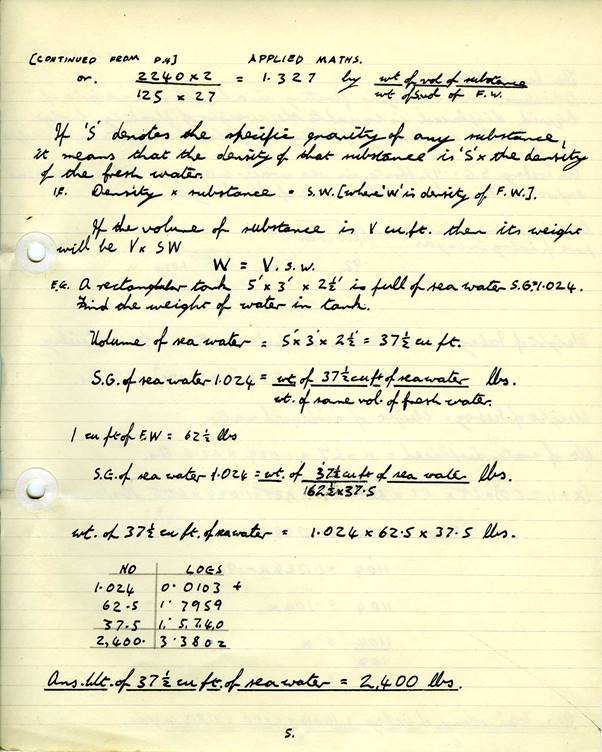 [CONTINUED FROM P.4] APPLIED MATHS.
or. 2240 x 2 / 125 x 27 = 1.327 by wt of vol of substance / wt of vol of F.W.
If 'S' denotes the specific gravity of any substance,
it means that the density of that substance is 'S' x the density
of the fresh water.
IE. Density x substance = S.W. [where 'W' is density of F.W.].
If the volume of substance is V cu.ft. then its weight
will be V x SW
W = V.S.W.
E.G. A rectangular tank 5' x 3' x 2½' is full of sea water S.G.=1.024.
Find the weight of water in tank.
Volume of sea water = 5' x 3' x 2½' = 37½ cu ft.
S.G. of sea water 1.024 = wt. of 37½ cu ft of sea water / wt. of same vol. of fresh water. lbs.
1 cu ft of F.W = 62½ lbs
S.G. of sea water 1.024 = wt. of 37½ cu ft of sea water / 62½ x 37.5 lbs.
wt. of 37½ cu ft. of sea water = 1.024 x 62.5 x 37.5 lbs.
NO LOGS
1.024 0.0103 +
62.5 1.7959
37.5 1.5740
2,400. 3.3802
Ans. Wt. of 37½ cu ft. of sea water = 2,400 lbs.
5.